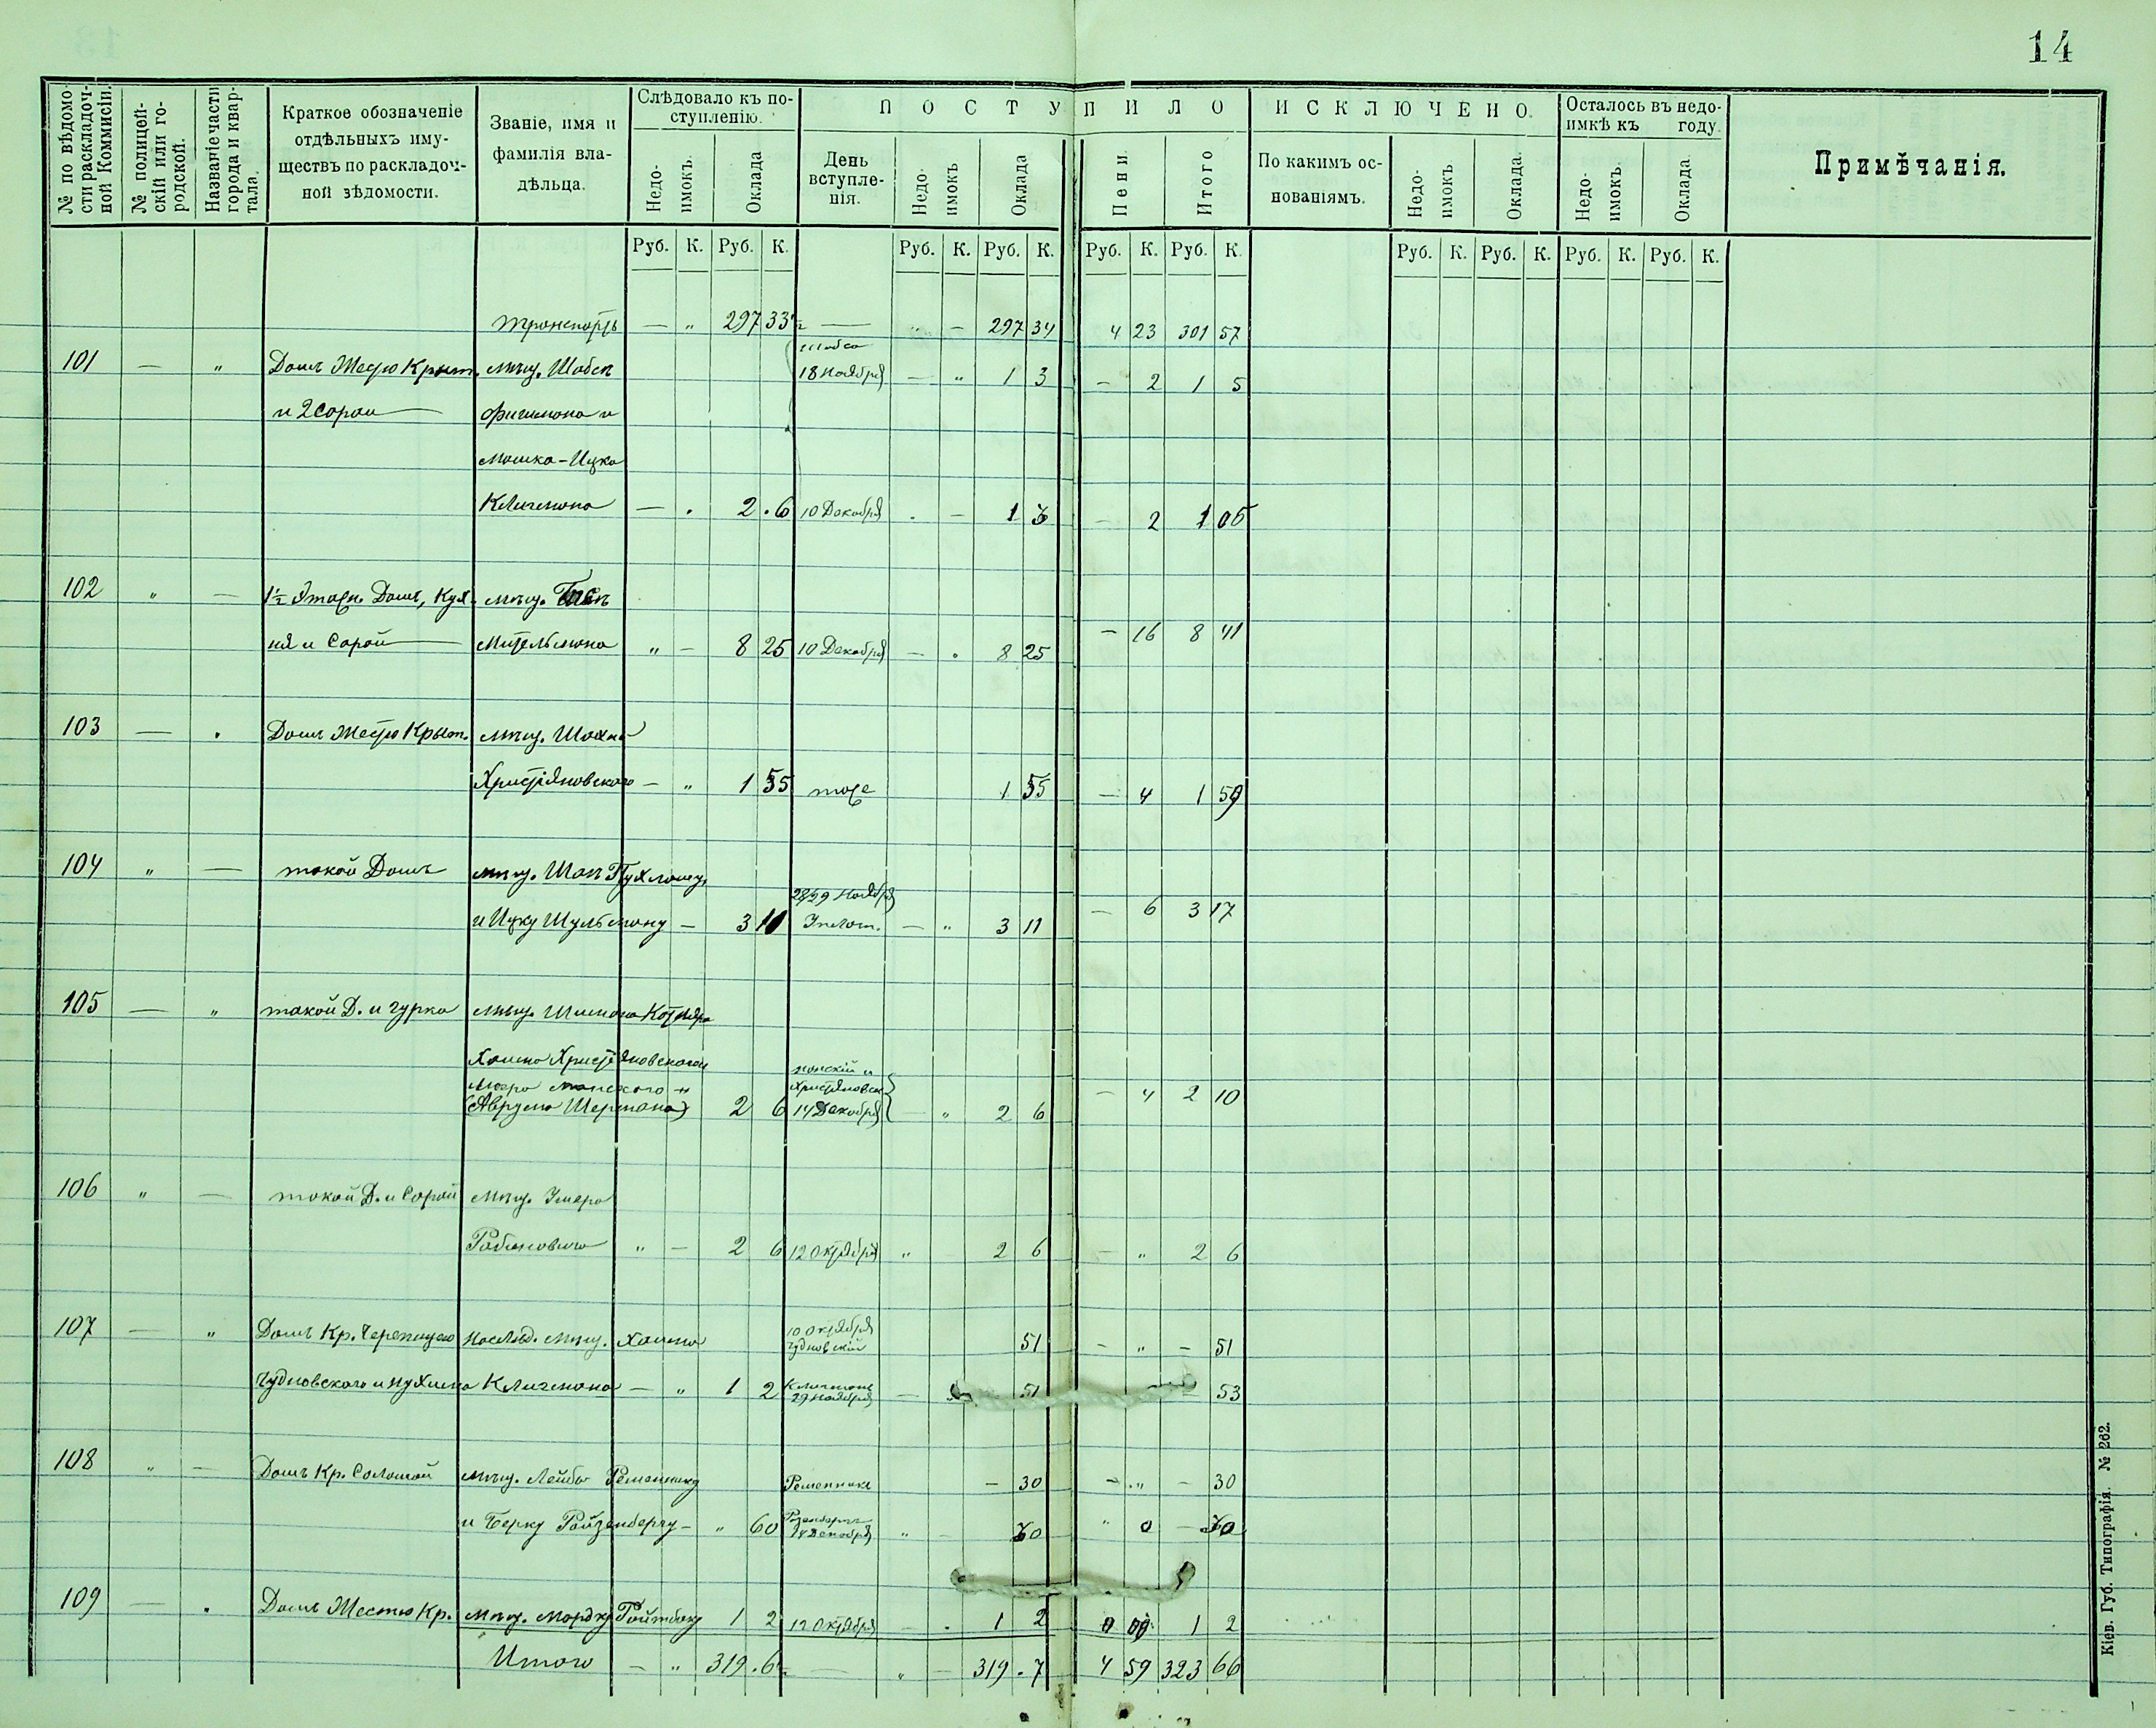 14
№ по вѣдомости раскладочной Коммисіи.
№ полицейскій или городской.
Названіе части города и квартала.
Краткое обозначеніе отдѣльныхъ имуществъ по раскладочной вѣдомости.
Званіе, имя и фамилія владѣльца.
Слѣдовало къ поступленію.
Недоимокъ.
Оклада
ПОСТУПИЛО
День вступленія.
Недоимокъ
Оклада
Пени.
Итого
ИСКЛЮЧЕНО.
По какимъ основаніямъ.
Недоимокъ
Оклада.
Осталось въ недоимкѣ къ году.
Недоимокъ
Оклада.
Примѣчанія.
Руб. К. Руб. К. Руб. К. Руб. К. Руб. К. Руб. К. Руб. К. Руб. К. Руб. К. Руб. К.
Транспортъ — " 297 33½ — " — 297 34 4 23 301 57
101 — " Домъ Жестю Крыт. мѣщ. 18 Ноября — " 1 3 — 2 1 5
и 2 Сараи
Мошка-Ицка
Клигмона — . 2 . 6 10 Декабря . — 1 3 — 2 1 05
102 " — 1½ Этажн. Домъ, Кух- мѣщ.
ня и Сарай Мительмона " — 8 25 10 Декабря — . 8 25 — 16 8 41
103 — . Домъ Жестю Крыт. мѣщ.
Христіяновского — " 1 55 тоже 1 55 — 4 1 59
104 " — такой Домъ мѣщ.
и Ицку Шульману — 3 11 28/29 Ноября — " 3 11 — 6 3 17
105 — " такой Д. и мѣщ. Котляра
Хаима Христіяновского
Манского и
(Аврума Шермана) 2 6 Манскій и Христіяновск. 14 Декабря — " 2 6 — 4 2 10
106 " — такой Д. и Сарай мѣщ.
Рабиновича " — 2 6 12 Октября " 2 6 — " 2 6
107 — " Домъ Кр. Черепицею Наслѣд. мѣщ. Хаима 10 Октября Чудновскій 51 — " — 51
Чудновского и Нухима Клигмона — " 1 2 Клигмонъ 29 Ноября — 51 — 53
108 " — Домъ Кр. Соломой мѣщ. Лейбѣ Ременнику — 30 — " — 30
и Берку Ройзенбергу — " 60 18 Декабря " — 30 " 0 — 30
109 — . Домъ Жестю Кр. мѣщ. Мордку Ройтбоку 1 2 12 Октября — . 1 2 1 2
Итого — " 319 . 6½ — " — 319 . 7 4 59 323 66
Кіев. Губ. Типографія. № 262.